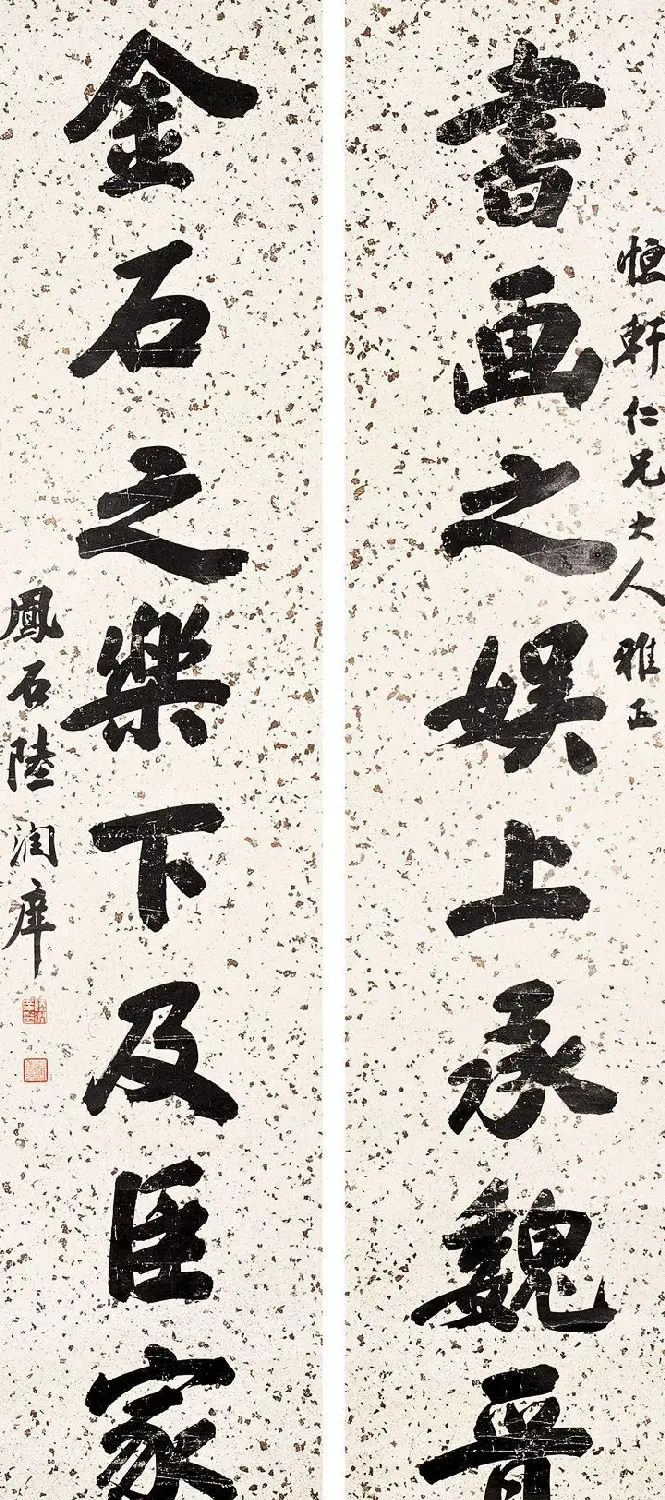 恒軒仁兄大人雅正
書画之娱上承魏晋
金石之樂下及臣家
鳳石陸潤庠